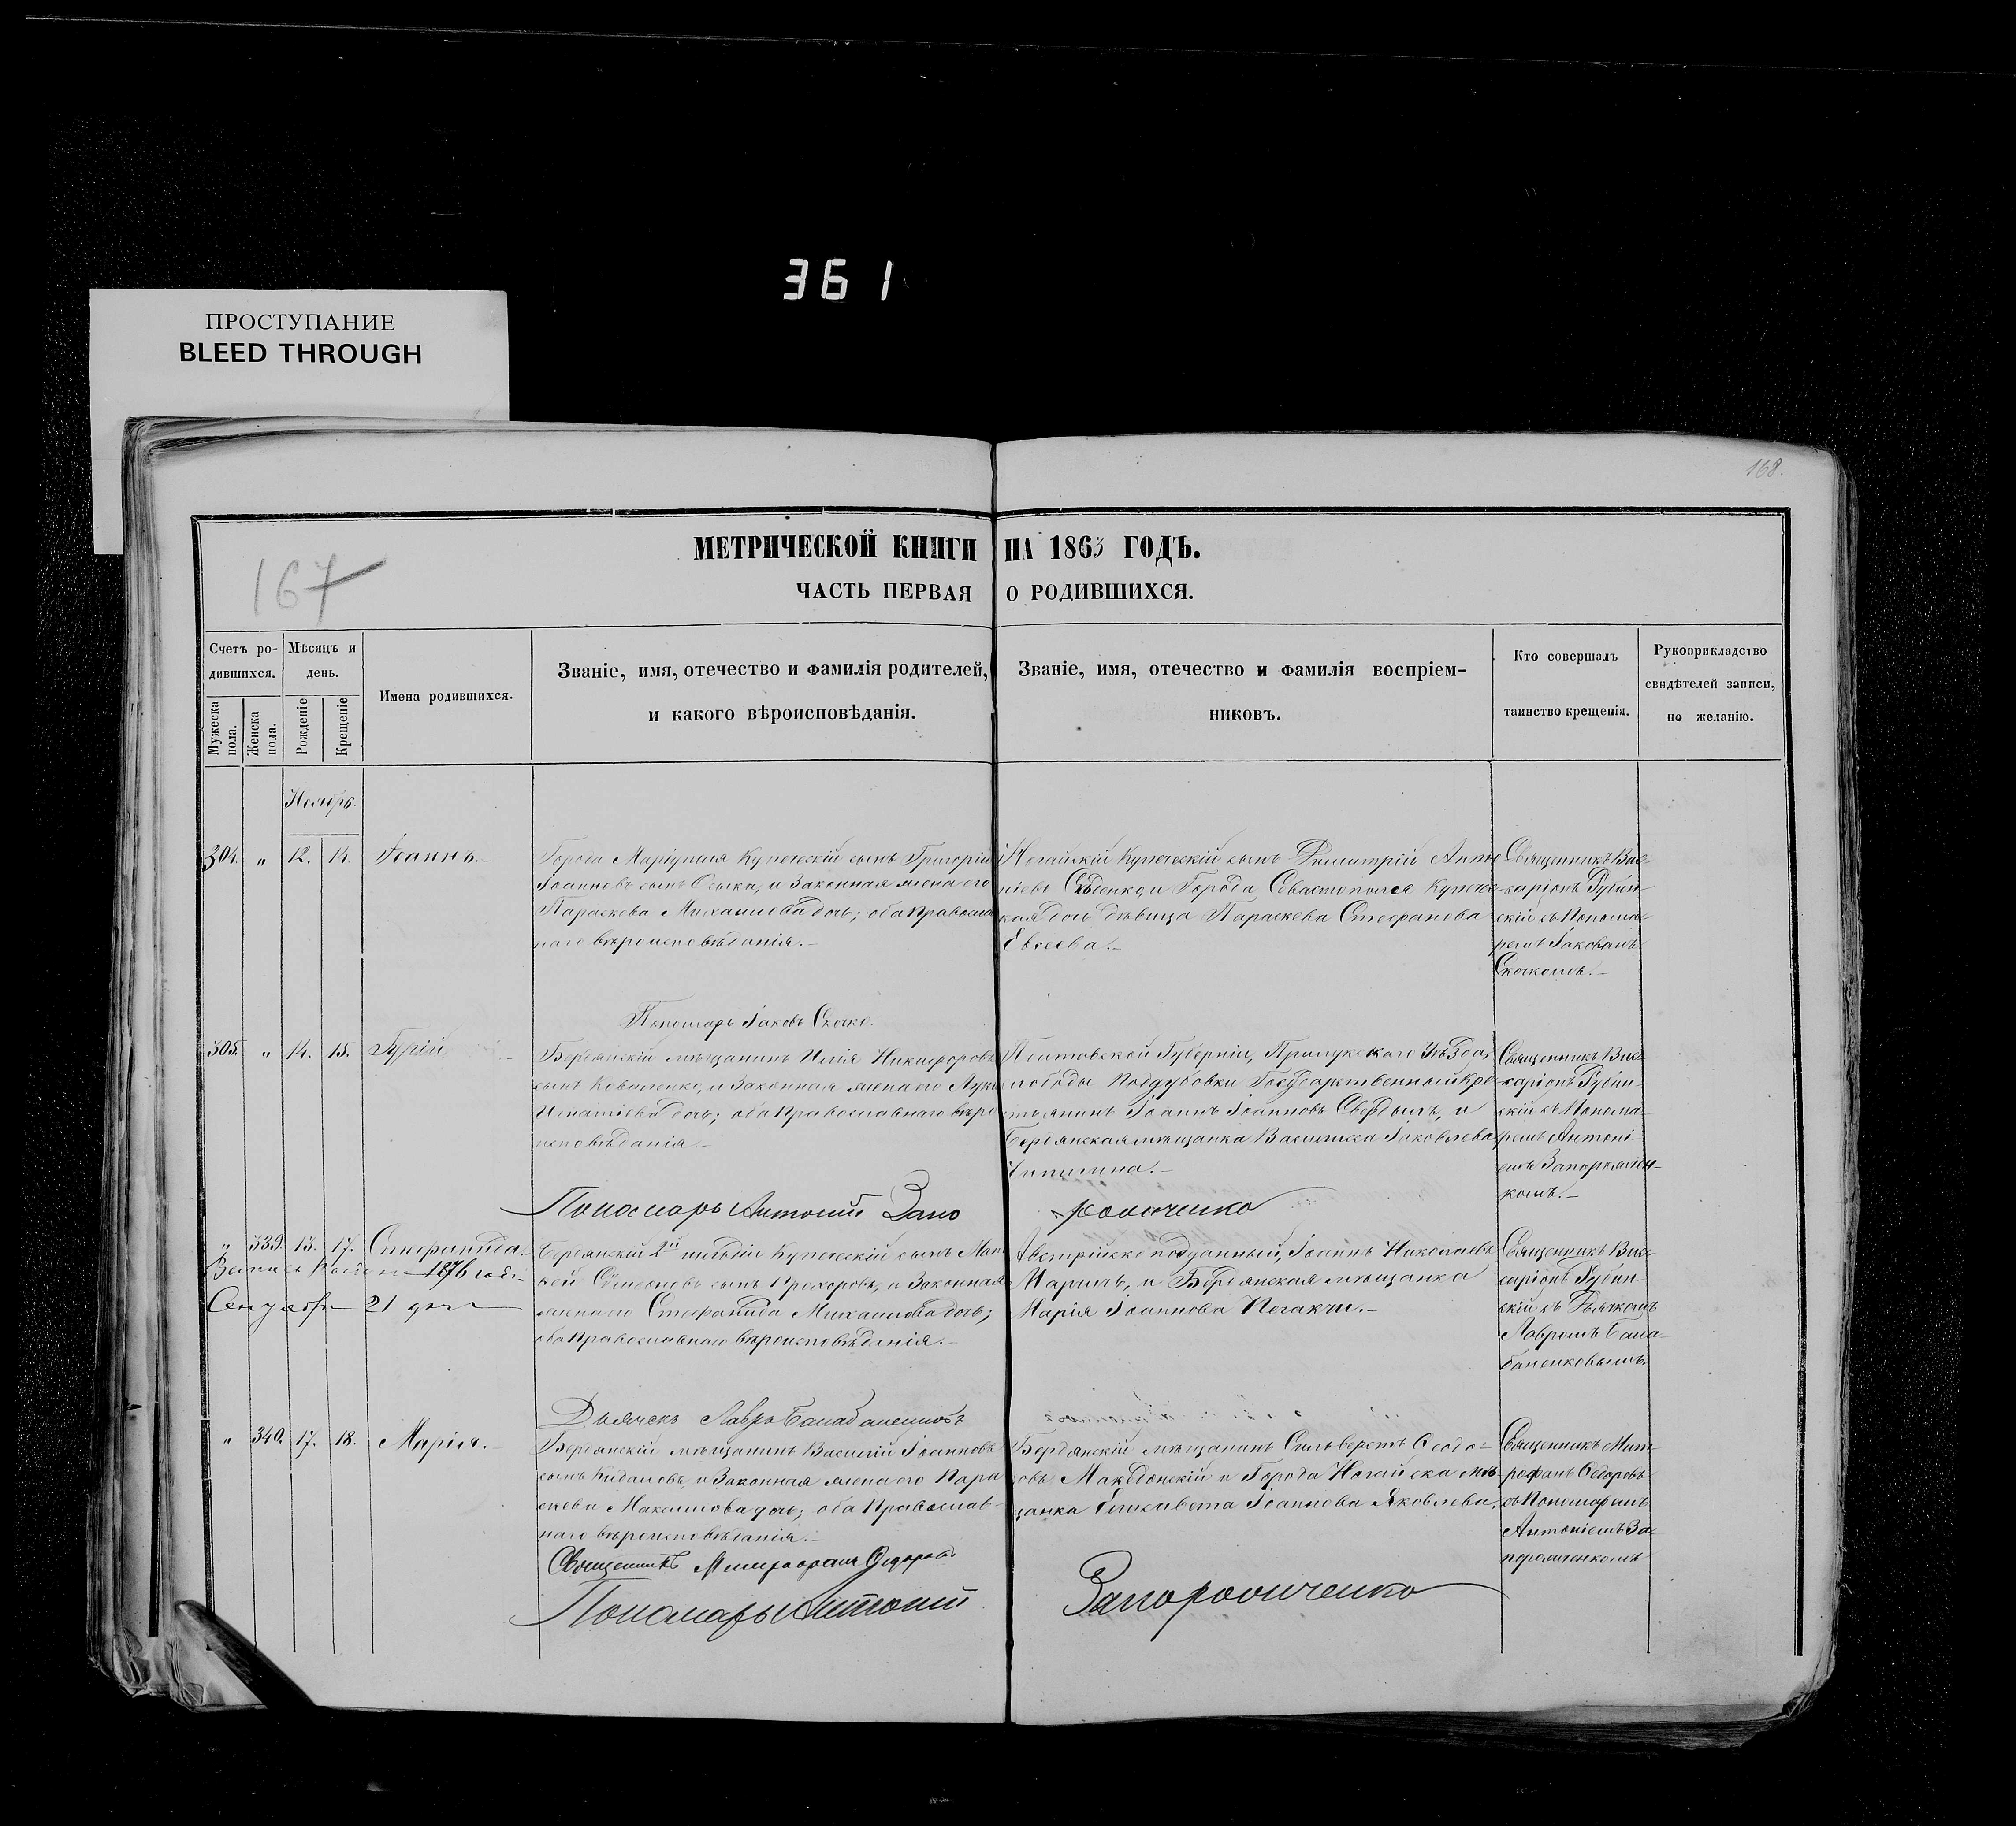 361
ПРОСТУПАНИЕ
BLEED THROUGH
168.
167
МЕТРИЧЕСКОЙ КНИГИ НА 1863 ГОДЪ.
ЧАСТЬ ПЕРВАЯ О РОДИВШИХСЯ.
Счетъ ро-
дившихся.
Мужеска пола.
Женска пола.
Мѣсяцъ и
день.
Рожденіе
Крещеніе
Имена родившихся.
Званіе, имя, отечество и фамилія родителей,
и какого вѣроисповѣданія.
Званіе, имя, отечество и фамилія воспріем-
никовъ.
Кто совершалъ
таинство крещенія.
Рукоприкладство
свидѣтелей записи,
по желанію.
Ноябрь.
304. " 12. 14. Іоаннъ.
Города Маріуполя Купеческій сынъ Григорій
Іоанновъ сынъ и Законная жена его
Параскева Михаилова дочь; оба Православ
наго вѣроисповѣданія.
Ногайскій Купеческій сынъ Димитрій Анто
ніевъ и Города Севастополя Купечес
кая дочь дѣвица Параскева Стефанова
Евсеева.
Священникъ Вис-
саріонъ
скій съ Понома-
ремъ Іаковомъ
Скочкомъ.
Пономарь Іаковъ Скочко.
305. " 14. 15. Гурій
Бердянскій мѣщанинъ Илія Никифоровъ
сынъ Коваленко, и Законная жена его
Игнатіева дочь; оба Православнаго вѣро
исповѣданія.
Полтавской Губерніи, Прилукскаго Уѣзда,
слободы Поддубовки Государственный Кре
стьянинъ Іоаннъ Іоанновъ и
Бердянская мѣщанка Василисса Іаковлева
Священникъ Вис-
саріонъ
скій съ Понома-
ремъ Антоні-
емъ Запорожчен-
комъ.
Пономарь Антоній Запо рожченко
" 339. 13. 17. Стефанида.
1876 года
Сентября 21 дня
Бердянскій 2й гильдіи Купеческій сынъ
Симеоновъ сынъ Прохоровъ, и Законная
жена его Стефанида Михаилова дочь;
оба Православнаго вѣроисповѣданія.
Австрійско подданный, Іоаннъ Николаевъ
Маринъ, и Бердянская мѣщанка
Марія Іоаннова
Священникъ Вис-
саріонъ
скій съ Дьячкомъ
Лавромъ Бала-
баненковымъ.
Дьячекъ Лавръ Балабаненковъ
" 340. 17. 18. Марія.
Бердянскій мѣщанинъ Василій Іоанновъ
сынъ и Законная жена его Пара
скева Максимова дочь; оба Православ-
наго вѣроисповѣданія.
Бердянскій мѣщанинъ Сильверстъ Ѳеодо-
овъ Македонскій и Города Ногайска мѣ
щанка Елисавета Іоаннова Яковлева.
Священникъ Мит-
рофанъ Ѳедоровъ
съ Пономаремъ
Антоніемъ За-
порожченкомъ
Священникъ Митрофанъ Ѳедоровъ
Пономарь Антоній Запорожченко